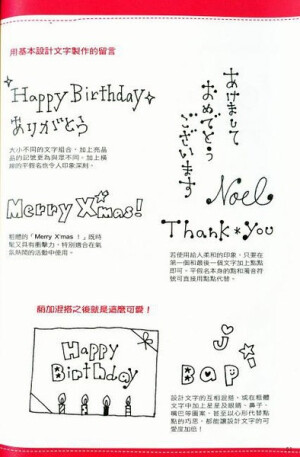 用基本設計文字製作的留言
Happy Birthday
ありがとう
大小不同的文字組合，加上亮晶
晶的記號更為與眾不同。加上橫
線的平假名也令人印象深刻。
あけまして
おめでとう
ございます
Noel
Merry X'mas!
粗體的「Merry X'mas！」既時
髦又具有衝擊力，特別適合在氣
氛熱鬧的活動中使用。
Thank*You
若使用給人柔和的印象，只要在
第一個和最後一個文字加上點點
即可。平假名本身的點和濁音符
號可直接用點點代替。
稍加混搭之後就是這麼可愛！
Happy
Birthday
J
Bap
設計文字的互相混搭，或在粗體
文字中加上星星及眼睛、鼻子、
嘴巴等圖案，甚至以心形代替點
點的巧思，都能讓設計文字的可
愛度加倍！